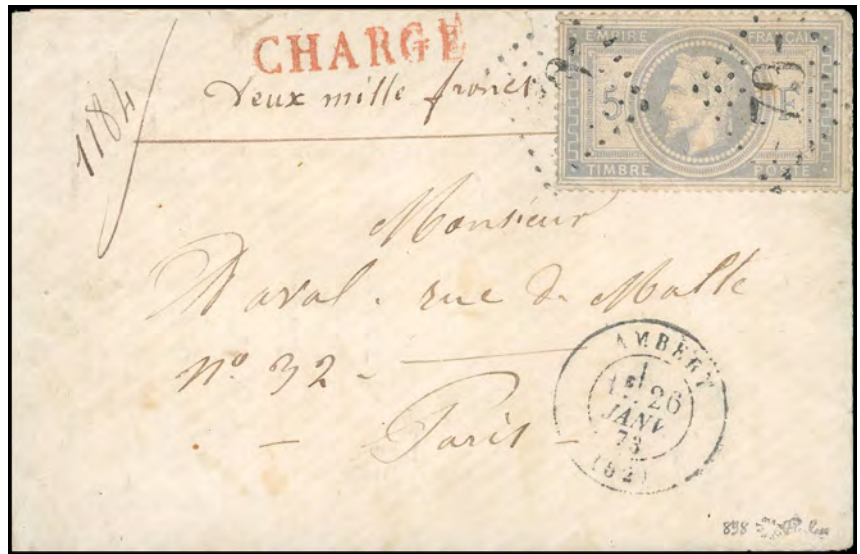 CHARGE
Deux mille francs
1184
EMPIRE FRANÇAIS
5 F
TIMBRE POSTE
78
Monsieur
Daval. rue de Malte
nº 32 -
- Paris -
AMBERT
1E
26
JANV.
73
(62)
898